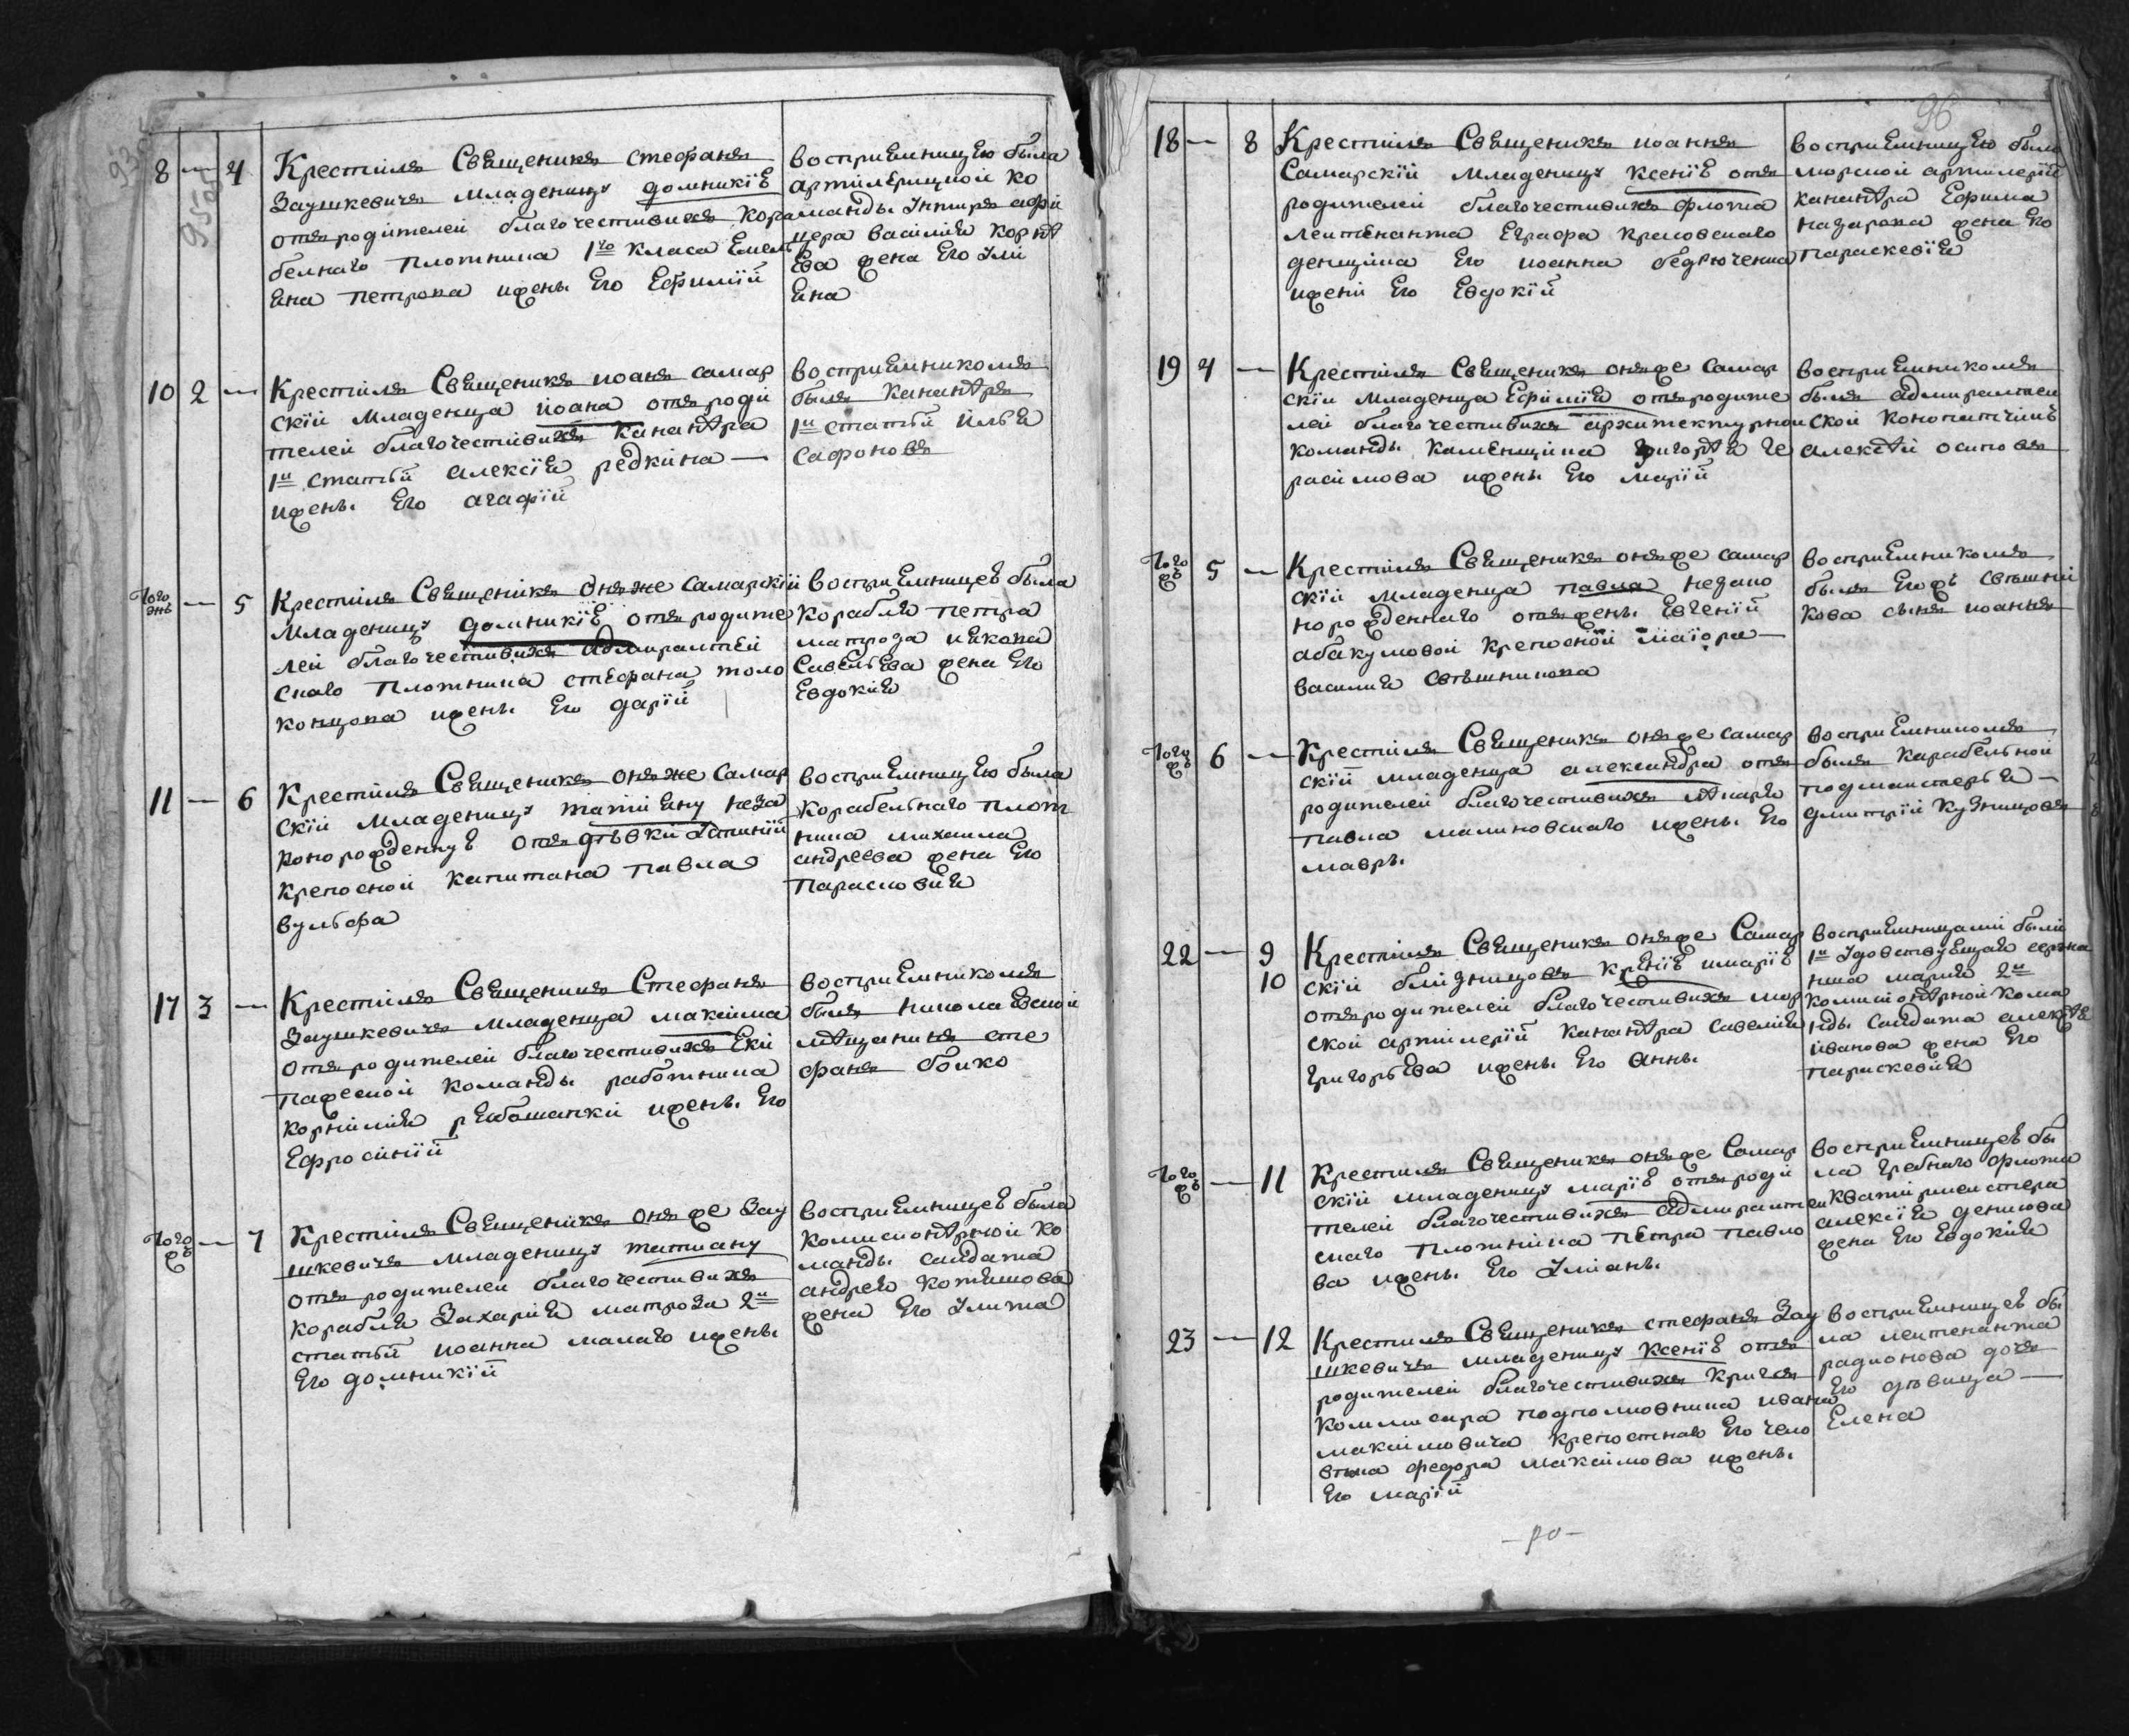 95об
8 — 4 Крестилъ Священикъ стефанъ
Заушкевичъ младеницу домникію
отъ родителей благочестивыхъ кора
белнаго плотника 1го класа Емель
яна петрова ижены Его Ефиміи
воспріемницею была
артилерицкой ко
манды ундиръ афи
цера василія
жена Его Ули
яна
10 2 — Крестилъ Священикъ иоанъ самар
скій младенца иоана отъ роди
телей благочестивыхъ кананера
1й статьи алексія редкина —
ижены Его агафіи
воспріемникомъ
былъ канан ръ
1й статьи илья
сафоновъ
того жъ — 5 Крестилъ Священикъ онъ же самарскій
младеницу домникію отъ родите
лей благочестивыхъ адмиралтей
скаго плотника стефана толо
концова ижены Его даріи
воспріемницею была
корабля петра
матроза якова
савельева жена Его
Евдокія
11 — 6 Крестилъ Священикъ онъ же самар
скій младеницу татіяну неза
конорожденную отъ дѣвки Устиніи
крепосной капитана павла
вульфа
воспріемницею была
корабельнаго плот
ника михаила
андреева жена Его
парасковия
17 3 — Крестилъ Священикъ Стефанъ
Заушкевичъ младенца максима
отъ родителей благочестивыхъ Еки
пажеской команды работника
корнилия рябошапки ижены Его
Ефросиніи
воспріемникомъ
былъ николаевской
мещанинъ сте
фанъ бойко
того жъ — 7 Крестилъ Священикъ онъ же Зау
шкевичъ младеницу татиану
отъ родителей благочестивыхъ
корабля Захария матроза 2й
статьи иоанна малаго ижены
Его домникіи
воспріемницею была
комисионерной ко
манды салдата
андрея котышова
жена Его Улита
96
18 — 8 Крестилъ Священикъ иоаннъ
Самарскій младеницу ксенію отъ
родителей благочестивыхъ флота
лейтенанта Еграфа красовскаго
денщика Его иоанна
ижени Его Евдокіи
воспріемницею была
морской артилеріи
канан ра Ефима
назарова жена Его
параскевія
19 4 — Крестилъ Священикъ онъ же самар
скій младенца Ефимія отъ родите
лей благочестивыхъ архитектурной
команды каменщика григорья ге
расимова ижены Его маріи
воспріемникомъ
былъ адмиралтей
ской конопатчикъ
алексей осиповъ
того жъ 5 — Крестилъ Священикъ онъ же самар
скій младенца павла незако
норожденнаго отъ жены Евгеніи
абакумовой крепосной маіора —
василия светшникова
воспріемникомъ
былъ Егожъ светшни
кова сынъ иоаннъ
того жъ 6 — Крестилъ Священикъ онъ же самар
скій младенца александра отъ
родителей благочестивыхъ лекаря
павла малиновскаго ижены Его
мавры
воспріемникомъ
былъ карабельной
подмастерья —
дмитрій кузницовъ
22 — 9 10 Крестилъ Священикъ онъ же Самар
скій близницовъ ксенію имарію
отъ родителей благочестивыхъ мор
ской артилеріи канан ра савелия
григорьева ижены Его анны
воспріемницами были
1й Удовствующаго
мария 2й
комисионерной кома
нды салдата алексея
иванова жена Его
параскевия
того жъ — 11 Крестилъ Священикъ онъ же Самар
скій младеницу марію отъ роди
телей благочестивыхъ адмиралтей
скаго плотника петра павло
ва ижены Его Улияны
воспріемницею бы
ла гребнаго флота
квартирмистера
алексія денисова
жена Его Евдокия
23 — 12 Крестилъ Священикъ стефанъ Зау
шкевичъ младеницу ксенію отъ
родителей благочестивыхъ кригсъ
коммисара подполковника ивана
максимовича крепостнаго Его чело
века федора максимова ижены
Его маріи
воспріемницею бы
ла лейтенанта
радионова дочь
Его дѣвица —
Елена